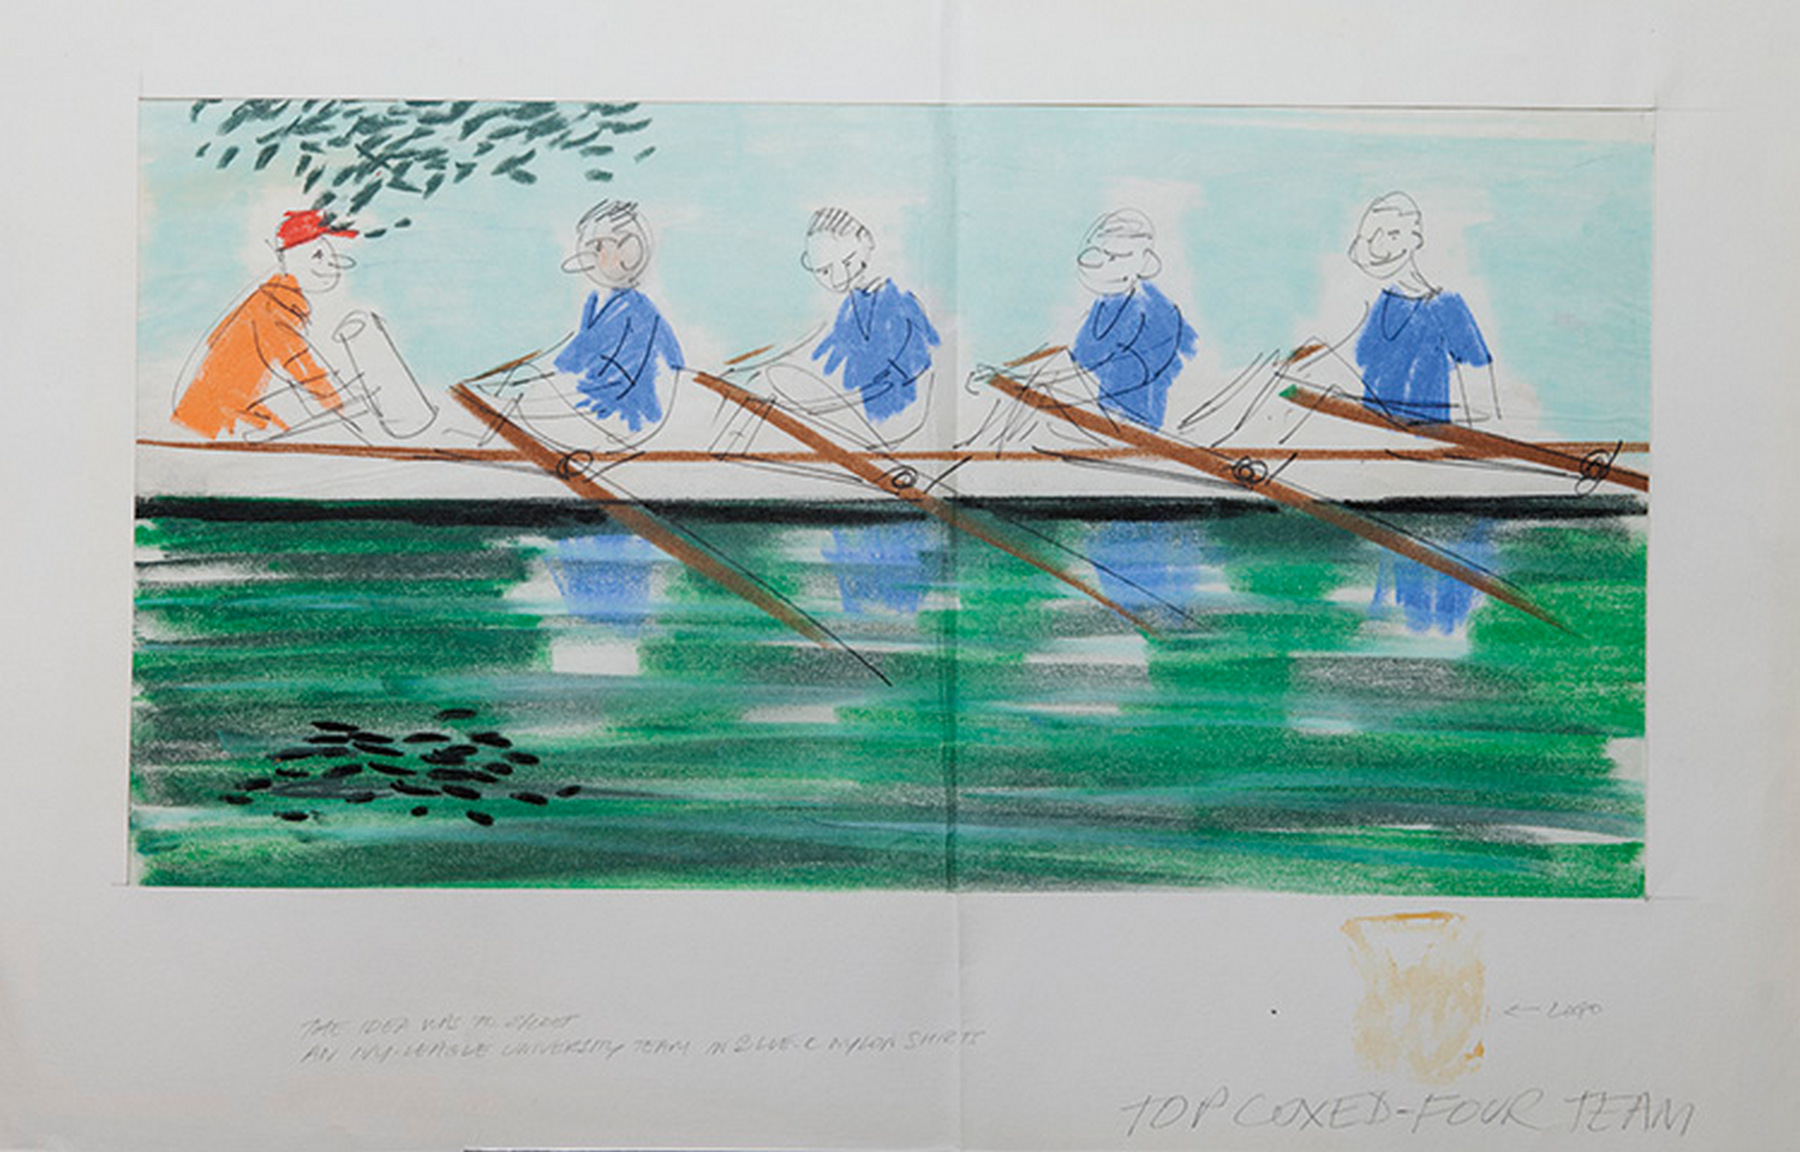 THE IDEA WAS TO SHOOT
AN IVY-LEAGUE UNIVERSITY TEAM IN BLUE-C NYLON SHIRTS
← LOGO
TOP COXED-FOUR TEAM